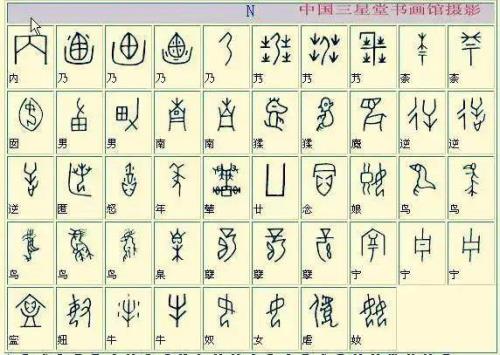 N 中国三星堂书画馆摄影
内 乃 乃 乃 乃 艿 艿 艿 柰 柰
囡 男 男 南 南 猱 猱 魔 逆 逆
逆 匿 怒 年 辇 廿 念 娘 鸟 鸟
鸟 鸟 鸟 臬 孽 孽 孽 宁 宁 宁
寍 纽 牛 牛 奴 女 虐